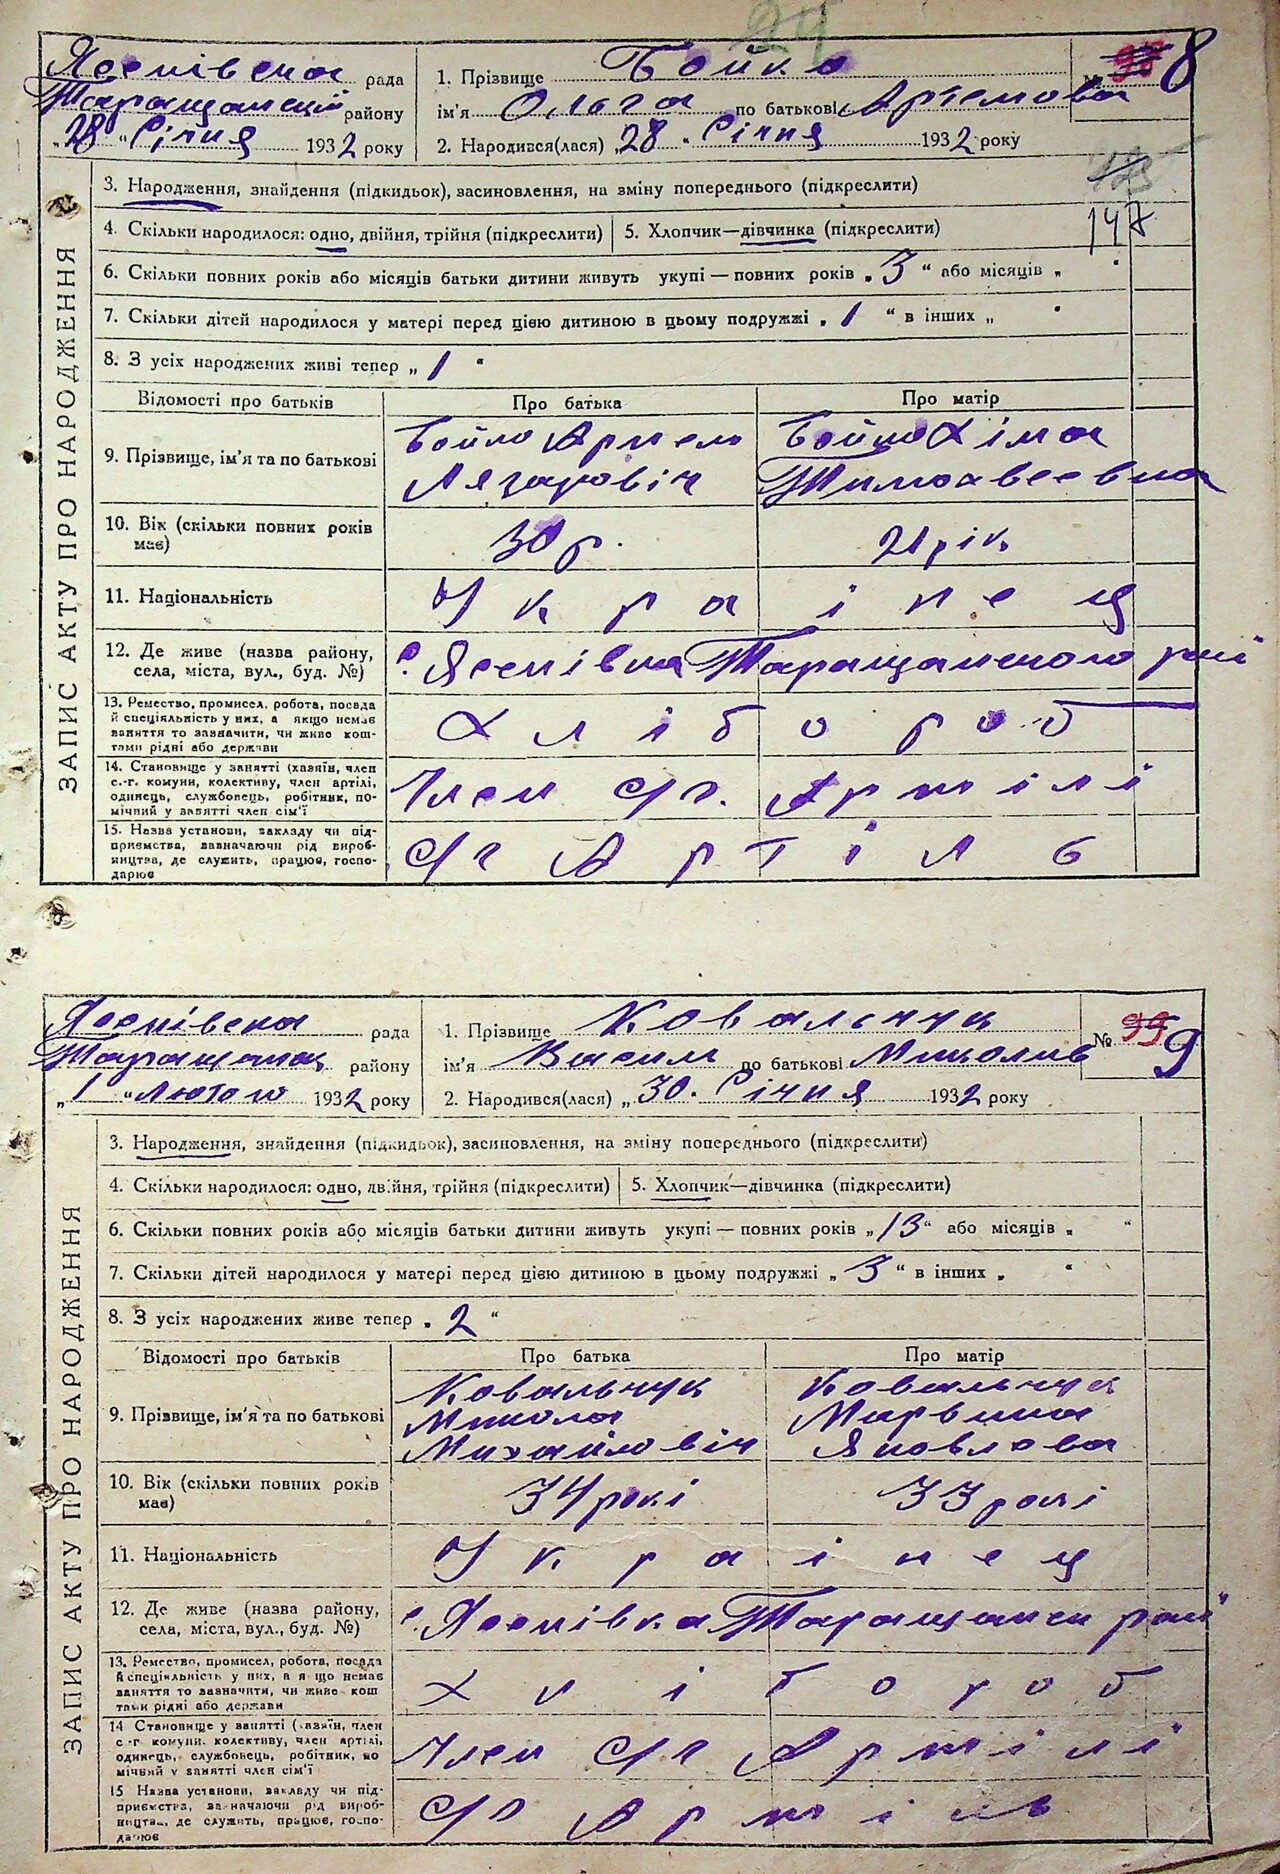 29
Ясенівска рада
Таращанській району
„28 “ Січня 1932 року
1. Прізвище Бойко
ім'я Ольга по батькові Артемова
2. Народився(лася) „28 „ Січня 1932 року
№ 8
147
ЗАПИС АКТУ ПРО НАРОДЖЕННЯ
3. Народження, знайдення (підкидьок), засиновлення, на зміну попереднього (підкреслити)
4. Скільки народилося: одно, двійня, трійня (підкреслити) 5. Хлопчик—дівчинка (підкреслити)
6. Скільки повних років або місяців батьки дитини живуть укупі — повних років „ 3 “ або місяців „ “
7. Скільки дітей народилося у матері перед цією дитиною в цьому подружжі „ 1 “ в інших „ “
8. З усіх народжених живі тепер „ 1 “
Відомості про батьків Про батька Про матір
9. Прізвище, ім'я та по батькові
Бойко Артем
Лязаровіч
Бойко Хіма
Тимохвеевна
10. Вік (скільки повних років має) 30 р. 21 рік
11. Національність Українец
12. Де живе (назва району, села, міста, вул., буд. №) с. Ясенівка Таращанского рай
13. Ремество, промисел, робота, посада
й спеціяльність у них, а якщо немає
заняття то зазначити, чи живе кош-
тами рідні або держави
Хлібороб
14. Становище у занятті (хазяїн, член
с.-г. комуни, колективу, член артілі,
одинець, службовець, робітник, по-
мічний у занятті член сім'ї
Член с/г. Артілі
15. Назва установи, закладу чи під-
приємства, зазначаючи рід вироб-
ництва, де служить, працює, госпо-
дарює
С/г Артіль
Ясенівска рада
району
„ 1 “ Лютого 1932 року
1. Прізвище Ковальчук
ім'я Василь по батькові Миколив
2. Народився(лася) „ 30. Січня 1932 року
№ 99 9
ЗАПИС АКТУ ПРО НАРОДЖЕННЯ
3. Народження, знайдення (підкидьок), засиновлення, на зміну попереднього (підкреслити)
4. Скільки народилося: одно, двійня, трійня (підкреслити) 5. Хлопчик—дівчинка (підкреслити)
6. Скільки повних років або місяців батьки дитини живуть укупі — повних років „ 13 “ або місяців „ “
7. Скільки дітей народилося у матері перед цією дитиною в цьому подружжі „ 3 “ в інших „ “
8. З усіх народжених живе тепер „ 2 “
Відомості про батьків Про батька Про матір
9. Прізвище, ім'я та по батькові
Ковальчук
Микола
Михайловіч
Ковальчук
Марьина
Яковлова
10. Вік (скільки повних років має) 34 рокі 33 рокі
11. Національність Українец
12. Де живе (назва району, села, міста, вул., буд. №) с. Ясенівка Таращанск рай
13. Ремество, промисел, робота, посада
й спеціяльність у них, а я що немає
заняття то зазначити, чи живе кош
тами рідні або держави
Хлібороб
14 Становище у занятті (хазяїн, член
с -г комуни, колективу, член артілі,
одинець, службовець, робітник, по
мічний у занятті член сім'ї
Член с/г Артілі
15 Назва установи, закладу чи під-
приємства, зазначаючи рід вироб-
ництва, де служить, працює, госпо-
дарює
С/г Артіль